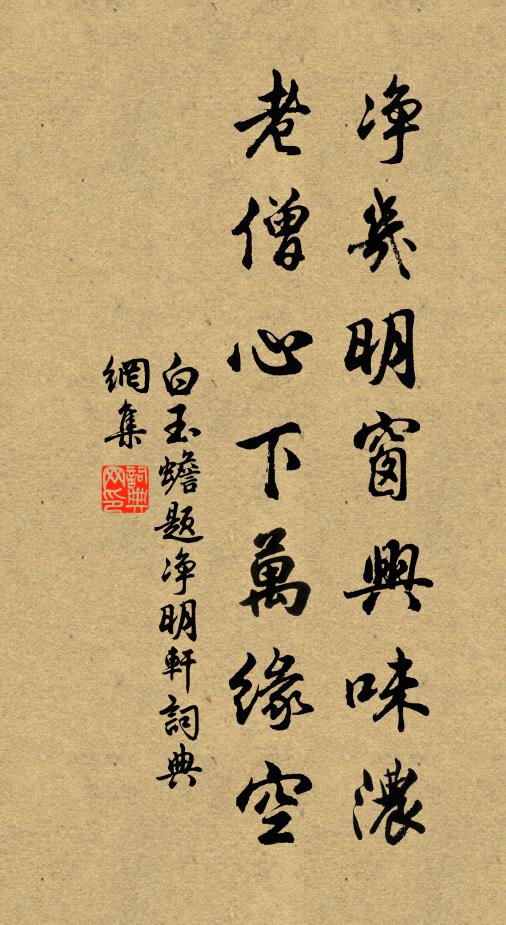 净几明窗興味濃
老僧心下萬緣空
白玉蟾題净明軒詞典
網集
詞典
网印